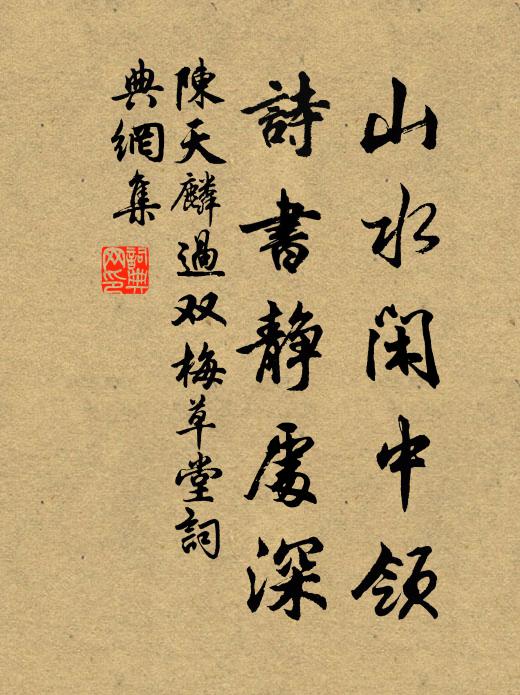 山水閑中領
詩書静處深
陳天麟過双梅草堂詞
典網集
詞典网印